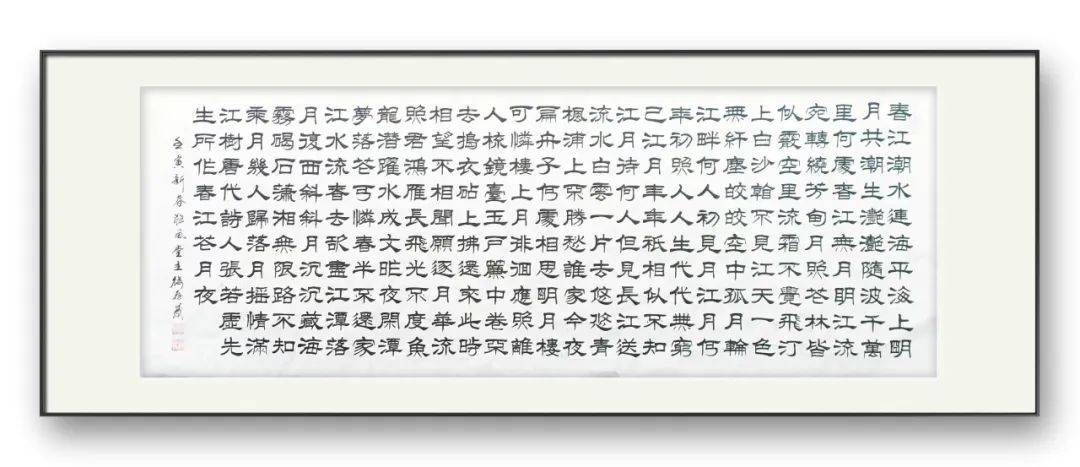 春江潮水連海平海上明
月共潮生灩灩隨波千萬
里何處春江無月明江流
宛轉繞芳甸月照花林皆
似霰空里流霜不覺飛汀
上白沙看不見江天一色
無纤塵皎皎空中孤月輪
江畔何人初見月江月何
年初照人人生代代無窮
已江月年年祇相似不知
江月待何人但見長江送
流水白雲一片去悠悠青
楓浦上不勝愁誰家今夜
扁舟子何處相思明月樓
可憐樓上月徘徊應照離
人梳鏡臺玉戶簾中卷不
去搗衣砧上拂還來此時
相望不相聞願逐月華流
照君鴻雁長飛光不度魚
龍潛躍水成文昨夜閑潭
夢落花可憐春半不還家
江水流春去欲盡江潭落
月復西斜斜月沉沉藏海
霧碣石瀟湘無限路不知
乘月幾人歸落月搖情滿
江樹唐代詩人張若虛先
生所作春江花月夜
壬寅新春風堂主